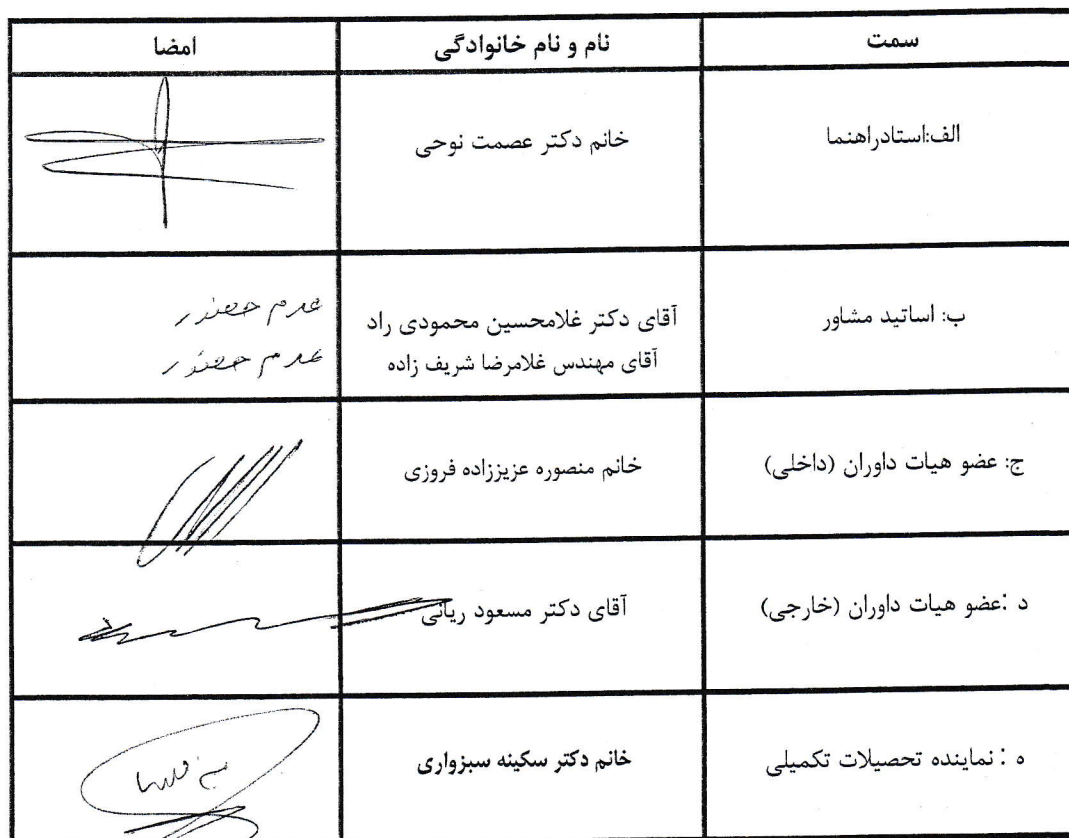 سمت نام و نام خانوادگی امضا
الف:استادراهنما خانم دکتر عصمت نوحی
ب: اساتید مشاور آقای دکتر غلامحسین محمودی راد عدم حضور
آقای مهندس غلامرضا شریف زاده عدم حضور
ج: عضو هیات داوران (داخلی) خانم منصوره عزیززاده فروزی
د :عضو هیات داوران (خارجی) آقای دکتر مسعود ریانی
ه : نماینده تحصیلات تکمیلی خانم دکتر سکینه سبزواری